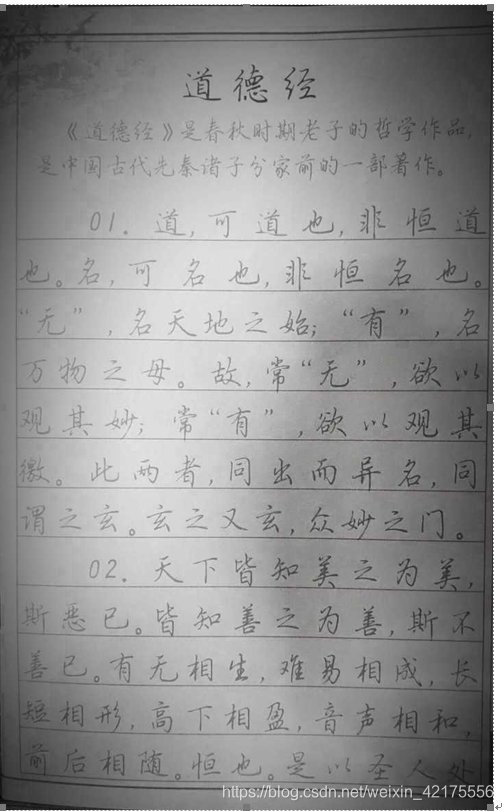 道德经
《道德经》是春秋时期老子的哲学作品,
是中国古代先秦诸子分家前的一部著作。
01. 道,可道也,非恒道
也。名,可名也,非恒名也。
“无”,名天地之始;“有”,名
万物之母。故,常“无”,欲以
观其妙;常“有”,欲以观其
徼。此两者,同出而异名,同
谓之玄。玄之又玄,众妙之门。
02. 天下皆知美之为美,
斯恶已。皆知善之为善,斯不
善已。有无相生,难易相成,长
短相形,高下相盈,音声相和,
前后相随。恒也。是以圣人处
https://blog.csdn.net/weixin_42175556